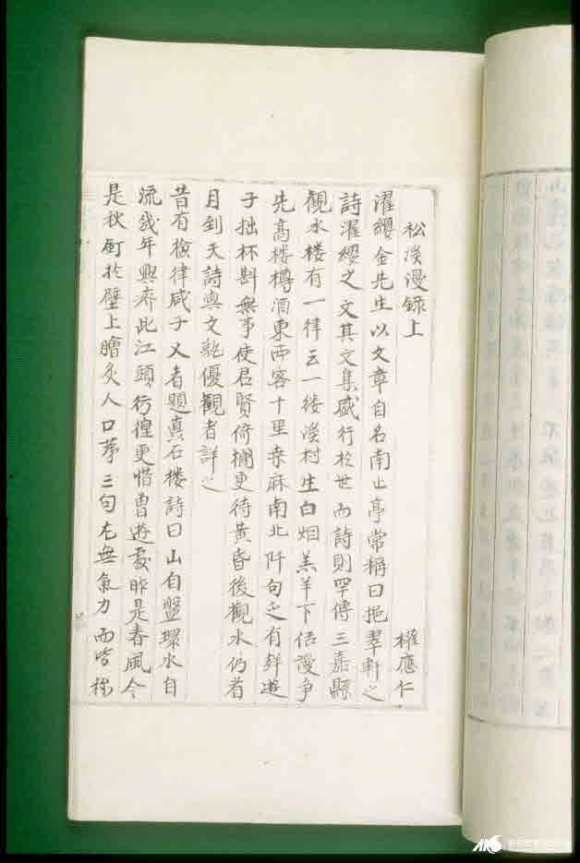 松溪漫錄上 權應仁
濯纓金先生以文章自名南止亭常稱曰挹翠軒之
詩濯纓之文其文集盛行於世而詩則罕傳三嘉縣
觀水楼有一律云一縷溪村生白烟羔羊下佸謾爭
先高楼樽酒東西客十里桑麻南北阡句乏有遊
子拙杯斟無事使君賢倚欄更待黃昏後觀水仍看
月到天詩與文孰優觀者詳之
昔有檢律咸子乂者題矗石楼詩曰山自盤環水自
流幾年興廢此江頭彷徨更惜曾遊處昨是春風今
是秋釘於壁上膾炙人口第三句尤無氣力而皆稱